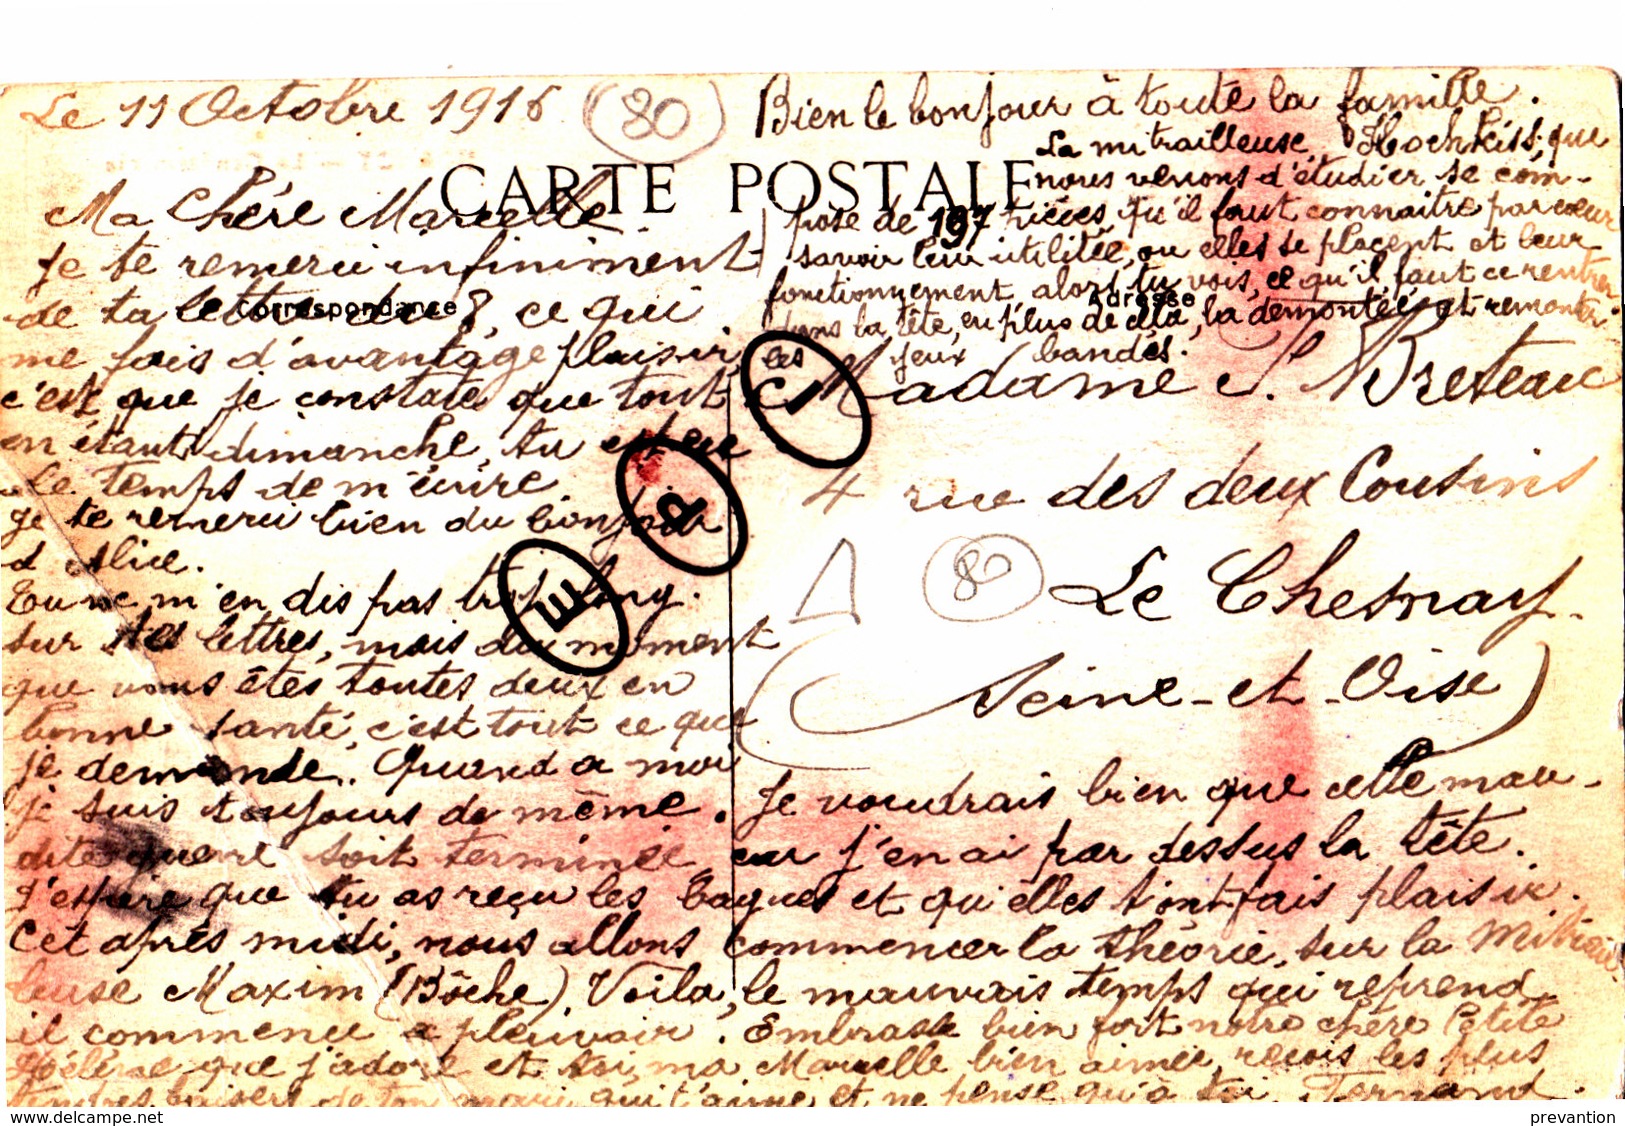 Le 11 Octobre 1916 (80)
CARTE POSTALE
Correspondance
Adresse
Ma Chére Marcelle.
Je te remerci infiniment
de ta lettre du 8, ce qui
me fais d'avantage plaisir,
c'est que je constate que tout
en étant dimanche, tu
Le temps de m'écrire.
Je te remerci bien du bonjour
d Alice.
Tu ne m'en dis pas trop long.
sur tes lettres, mais du moment
que vous êtes toutes deux en
bonne santé, c'est tout ce que
je demande. Quand a moi
je suis toujours de même. Je voudrais bien que cette mau-
dite guerre soit terminée, car j'en ai par dessus la tête.
J'espère que tu as reçu les bagues et qu'elles t'ont fais plaisir.
Cet après midi, nous allons commencer la théorie, sur la Mitrail
leuse Maxim (Bôche). Voila, le mauvais temps qui reprend
il commence a pleuvoir. Embrasse bien fort notre chére Petite
Hélène que j'adore et toi, ma Marcelle bien aimée, reçois les plus
tendres baisers de ton mari qui t'aime et ne pense qu'à toi. Fernand.
Bien le bonjour à toute la famille.
La mitrailleuse Hochkiss, que
nous venons d'étudier se com-
pose de 197 pièces, qu'il faut connaitre par cœur
savoir leur utilitée, ou elles se placent et leur
fonctionnement, alors tu vois, ce qu'il faut ce rentrer
dans la tête, en plus de cela, la démontée, et remonter
les yeux bandés.
Madame S. Breteau
4 rue des deux Cousins
Le Chesnay.
(Seine-et-Oise)
80
E
P
I
delcampe.net
prevantion